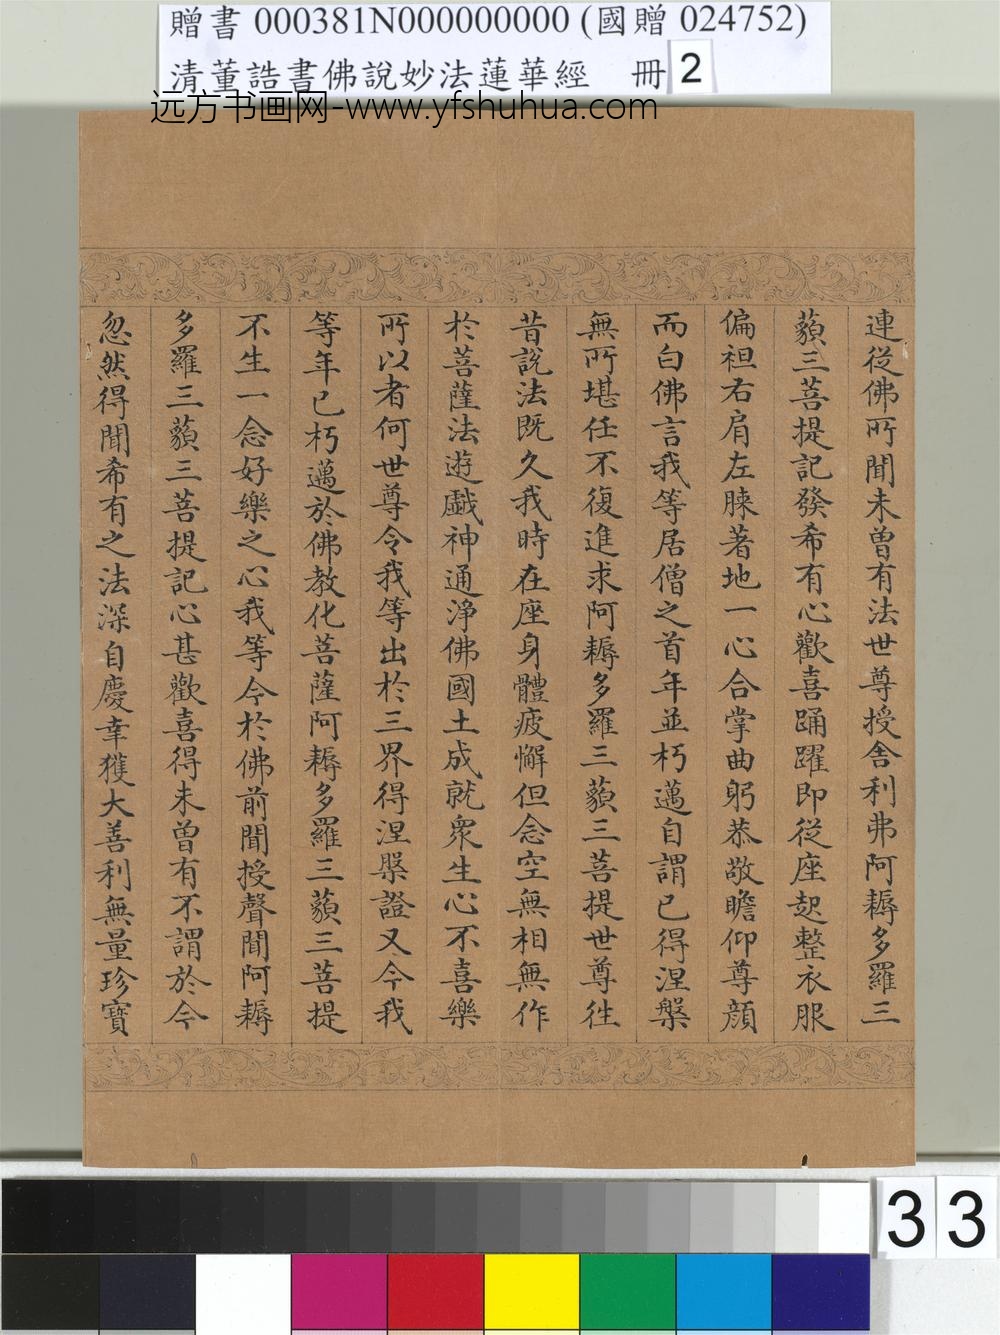 贈書 000381N000000000 (國贈 024752)
清董誥書佛說妙法蓮華經 冊 2
远方书画网-www.yfshuhua.com
連從佛所聞未曾有法世尊授舍利弗阿耨多羅三
藐三菩提記發希有心歡喜踊躍即從座起整衣服
偏袒右肩左膝著地一心合掌曲躬恭敬瞻仰尊顏
而白佛言我等居僧之首年並朽邁自謂已得涅槃
無所堪任不復進求阿耨多羅三藐三菩提世尊往
昔說法既久我時在座身體疲懈但念空無相無作
於菩薩法遊戲神通淨佛國土成就眾生心不喜樂
所以者何世尊令我等出於三界得涅槃證又今我
等年已朽邁於佛教化菩薩阿耨多羅三藐三菩提
不生一念好樂之心我等今於佛前聞授聲聞阿耨
多羅三藐三菩提記心甚歡喜得未曾有不謂於今
忽然得聞希有之法深自慶幸獲大善利無量珍寶
33